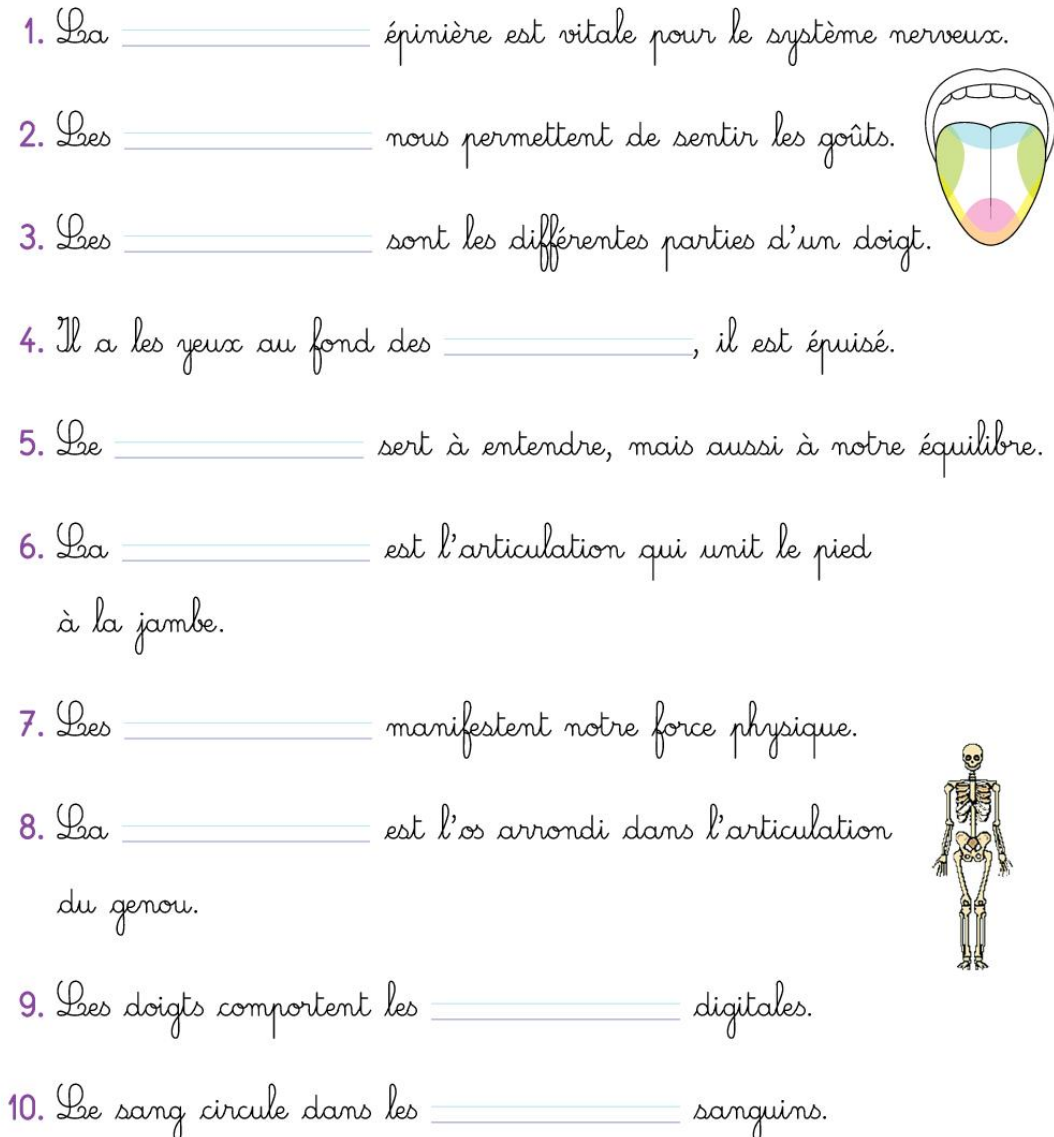 1. La ____________ épinière est vitale pour le système nerveux.
2. Les ____________ nous permettent de sentir les goûts.
3. Les ____________ sont les différentes parties d'un doigt.
4. Il a les yeux au fond des ____________, il est épuisé.
5. Le ____________ sert à entendre, mais aussi à notre équilibre.
6. La ____________ est l'articulation qui unit le pied
à la jambe.
7. Les ____________ manifestent notre force physique.
8. La ____________ est l'os arrondi dans l'articulation
du genou.
9. Les doigts comportent les ____________ digitales.
10. Le sang circule dans les ____________ sanguins.